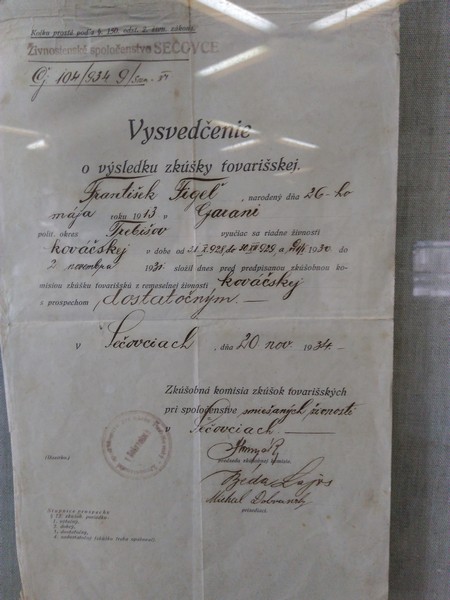 Kolku prosté podľa § 180. odst. 2. živn. zákona.
Živnostenské spoločenstvo SEČOVCE
Čj 104/934
Vysvedčenie
o výsledku zkúšky tovarišskej.
František Figeľ, narodený dňa 26-ho
mája roku 1913 v Garani
polit. okres Trebišov vyučiac sa riadne živnosti
kováčskej v dobe od 1928 do 1929, a 1930 do
2. novembra 1931 složil dnes pred predpísanou zkúšobnou ko-
misiou zkúšku tovarišskú z remeselnej živnosti kováčskej
s prospechom dostatočným
V Sečovciach, dňa 20 nov 1934.
Zkúšobná komisia zkúšok tovarišských
pri spoločenstve smiešaných živností
v Sečovciach.
predseda zkúšobnej komisie.
Beda Lajos
Michal
prísediaci.
Stupnica prospechu
1. výtečný,
2. dobrý,
3. dostatočný,